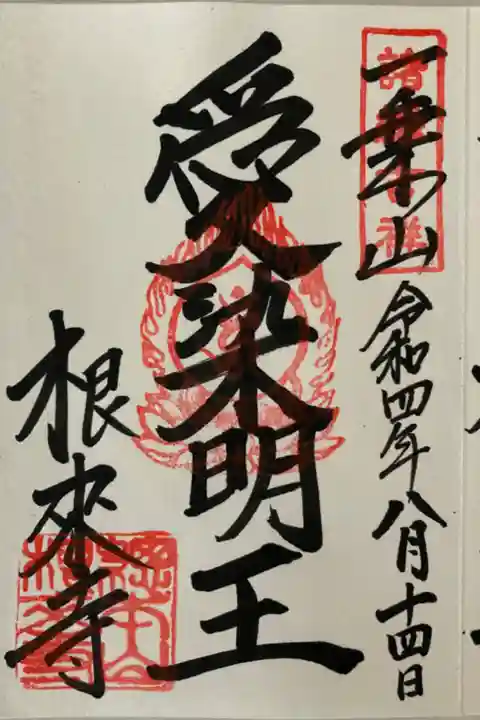 一乗山
令和四年八月十四日
愛染明王
根來寺